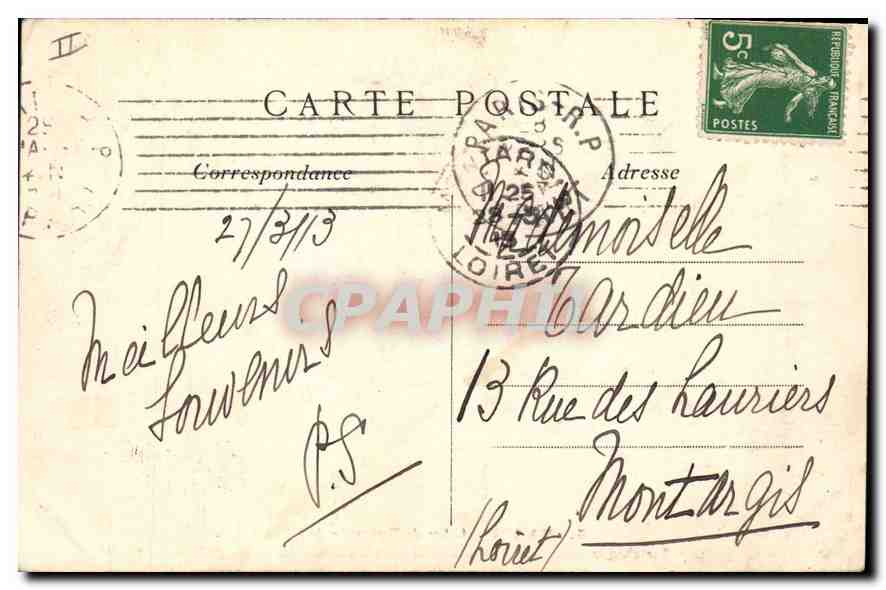 II
CARTE POSTALE
Correspondance
Adresse
RÉPUBLIQUE FRANÇAISE
5c
POSTES
25
LOIRET
27/3/13
Meilleurs
Souvenirs
P.S
Mademoiselle
Tardieu
13 Rue des Lauriers
Montargis
(Loiret)
CPAPHIL